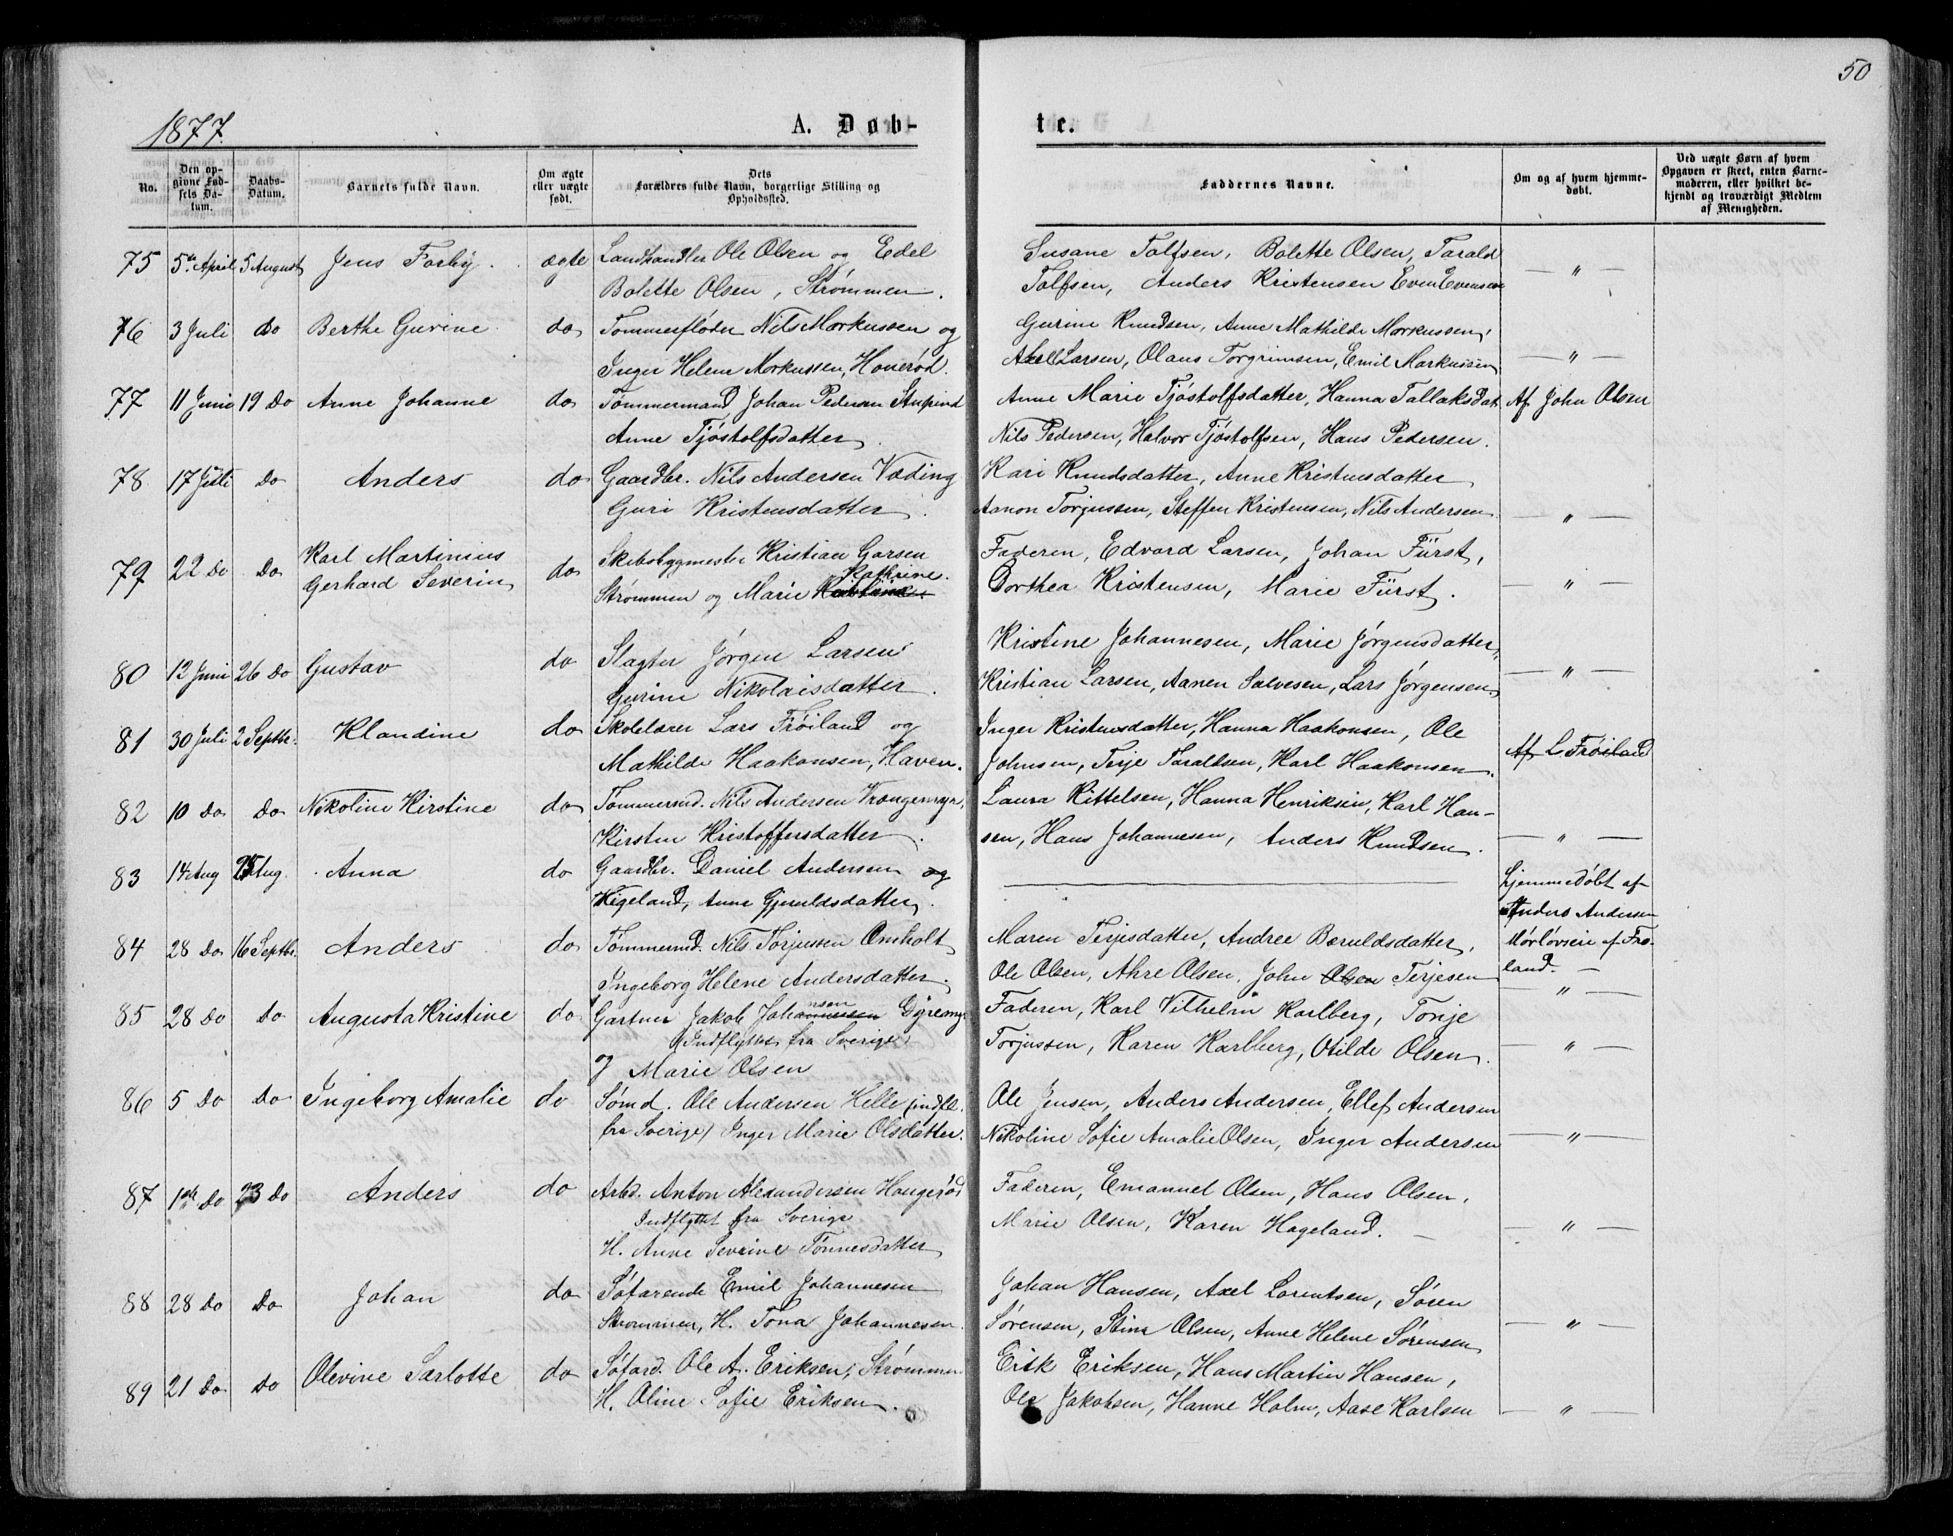 50
1877.
A. Døb-
te.
No.
Den opgivne Fødsels Datum.
Daabs-Datum.
Barnets fulde Navn.
Om ægte eller uægte født.
Dets Forældres fulde Navn, borgerlige Stilling og Opholdssted.
Faddernes Navne.
Om og af hvem hjemmedøbt.
Ved uægte Børn af hvem Opgaven er skeet, enten Barnemoderen, eller hvilket bekjendt og troværdigt Medlem af Menigheden.
75 5te April 5 August Jens Forby. ægte Landhandler Ole Olsen og Edel
Bolette Olsen, Strømmen.
Susane Tolfsen, Bolette Olsen, Tarald
Tolfsen, Anders Kristensen Even Evensen — " —
76 3 Juli Do Berthe Gurine do Tommerfløder Nils Markussen og
Inger Helene Markussen,
Gurine Knudsen, Anne Mathilde Markussen,
Axel Larsen, Olaus Torgrimsen, Emil Markussen — " —
77 11 Juni 19 Do Anne Johanne do Tømmermand Johan Pedersen
Anne Tjøstolfsdatter.
Anne Marie Tjøstolfsdatter, Hanna Tallaksdat. Af John Olsen
Nils Pedersen, Halvor Tjøstolfsen, Hans Pedersen.
78 17 Juli Do Anders do Gaardbr. Nils Andersen Væding
Guri Kristensdatter.
Kari Knudsdatter, Anne Kristensdatter
Aanon Torjussen, Steffen Kristensen, Nils Andersen. — " —
79 22 Do Do Karl Martinius
Gerhard Severin do Skibsbygmester Kristian Garsen
Strømmen og Marie Kathrine.
Faderen, Edvard Larsen, Johan Fürst,
Dorthea Kristensen, Marie Fürst. — " —
80 12 Juni 26 Do Gustav do Slagter Jørgen Larsen
Gurine Nikolaisdatter.
Kristine Johannesen, Marie Jørgensdatter,
Kristian Larsen, Aanen Salvesen, Lars Jørgensen — " —
81 30 Juli 2 Septbr. Klandine do Skolelærer Lars Frøiland og
Mathilde Haakonsen, Haven.
Inger Kristensdatter, Hanna Haakonsen, Ole
Johnsen, Terje Taraldsen, Karl Haakonsen. Af L Frøiland
82 10 Do Do Nikoline Kirstine do Tømmermd. Nils Andersen Vrangemyr,
Kirsten Kristoffersdatter.
Laura Kittelsen, Hanna Henriksen, Karl Han-
sen, Hans Johannesen, Anders Knudsen. — " —
83 14 Aug 25 Aug. Anna do Gaardbr. Daniel Andersen og
Vigeland, Anne Gjeruldsdatter.
Hjemmedøbt af
Anders Andersen
84 28 Do 16 Septbr. Anders do Tømmermd. Nils Torjussen Omholt
Ingeborg Helene Andersdatter.
Maren Terjesdatter, Andrea Beruldsdatter, af Frø-
Ole Olsen, Ahre Olsen, John Olsen Terjesen land. —
— " —
85 28 Do Do Augusta Kristine do Gartner Jakob Johannsen Dyremyr
(Indflyttet fra Sverige)
og Marie Olsen
Faderen, Karl Vilhelm Karlberg, Tonje
Torjussen, Karen Karlberg, Otilde Olsen. — " —
86 5 Do Do Ingeborg Amalie do Sømd. Ole Andersen Helle (indfl.
fra Sverige) Inger Marie Olsdatter.
Ole Jensen, Anders Andersen, Ellef Andersen
Nikoline Sofie Amalie Olsen, Inger Andersen — " —
87 1ste Do 23 Do Anders do Arbd. Anton Alexandersen Haugerød
Indflyttet fra Sverige
H. Anne Severine Tønnesdatter
Faderen, Emanuel Olsen, Hans Olsen,
Marie Olsen, Karen Hageland. — " —
88 28 Do Do Johan do Søfarende Emil Johannesen
Strømmen, H. Tona Johannesen.
Johan Hansen, Axel Lorentsen, Søren
Sørensen, Stina Olsen, Anne Helene Sørensen — " —
89 21 Do Do Olevine Sarlotte do Søfard. Ole A. Eriksen, Strømmen
H. Oline Sofie Eriksen.
Erik Eriksen, Hans Martin Hansen,
Ole Jakobsen, Hanne Holm, Aase Karlsen — " —